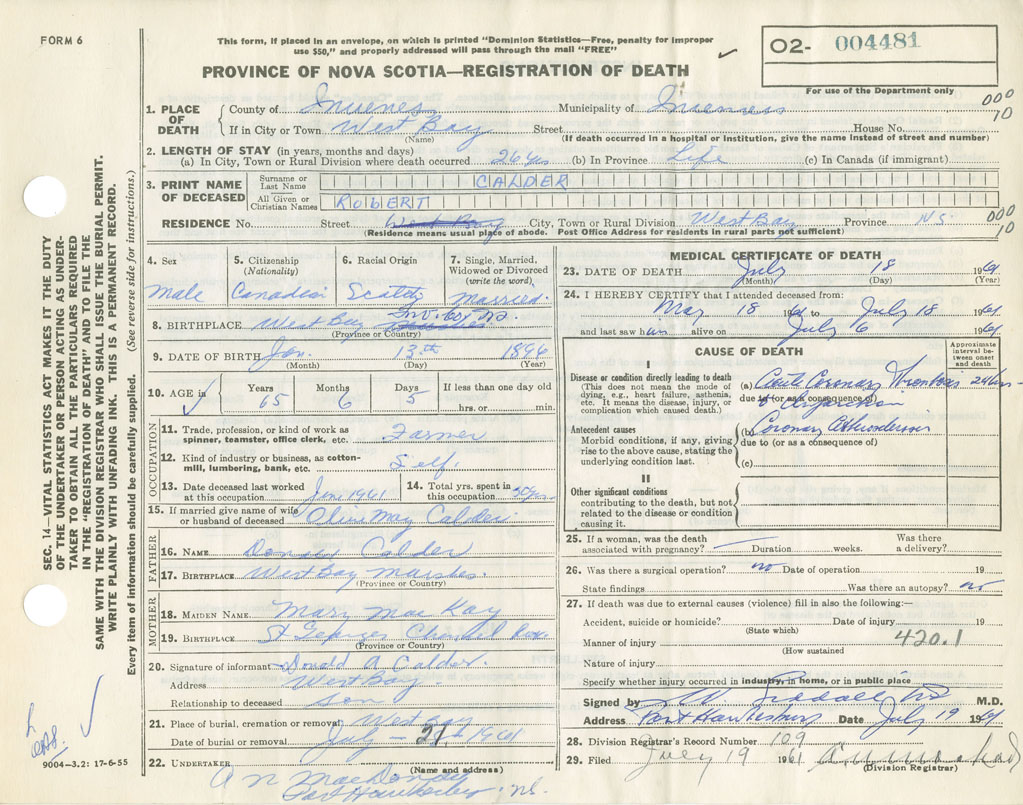 FORM 6
This form, if placed in an envelope, on which is printed "Dominion Statistics—Free, penalty for improper
use $50," and properly addressed will pass through the mail "FREE"
O2- 004481
PROVINCE OF NOVA SCOTIA—REGISTRATION OF DEATH
For use of the Department only
1. PLACE OF DEATH
County of Inverness Municipality of Inverness
000
10
If in City or Town West Bay Street House No.
(Name) (If death occurred in a hospital or institution, give the name instead of street and number)
2. LENGTH OF STAY (in years, months and days)
(a) In City, Town or Rural Division where death occurred 26 yrs (b) In Province Life (c) In Canada (if immigrant)
3. PRINT NAME OF DECEASED
Surname or Last Name CALDER
All Given or Christian Names ROBERT
RESIDENCE No. Street West Bay City, Town or Rural Division West Bay Province N.S.
000
10
(Residence means usual place of abode. Post Office Address for residents in rural parts not sufficient)
4. Sex
Male
5. Citizenship
(Nationality)
Canadian
6. Racial Origin
Scotch
7. Single, Married,
Widowed or Divorced
(write the word)
Married
8. BIRTHPLACE West Bay Inv. Co. N.S.
(Province or Country)
9. DATE OF BIRTH Jan. 13th 1896
(Month) (Day) (Year)
10. AGE in Years Months Days If less than one day old
65 6 5 hrs. or min.
OCCUPATION
11. Trade, profession, or kind of work as
spinner, teamster, office clerk, etc. Farmer
12. Kind of industry or business, as cotton-
mill, lumbering, bank, etc. Self.
13. Date deceased last worked
at this occupation June 1961
14. Total yrs. spent in
this occupation 50 yrs.
15. If married give name of wife
or husband of deceased Olive May Calder
FATHER
16. NAME Calder
17. BIRTHPLACE West Bay Marshes
(Province or Country)
MOTHER
18. MAIDEN NAME Mary MacKay
19. BIRTHPLACE St Georges Channel
(Province or Country)
20. Signature of informant Donald A Calder.
Address West Bay
Relationship to deceased Son
21. Place of burial, cremation or removal West Bay
Date of burial or removal July 21 1961
22. UNDERTAKER A N MacDonald
(Name and address)
Port Hawkesbury N.S.
MEDICAL CERTIFICATE OF DEATH
23. DATE OF DEATH July 18 1961
(Month) (Day) (Year)
24. I HEREBY CERTIFY that I attended deceased from:
May 18 1961 to July 18 1961
and last saw him alive on July 6 1961
CAUSE OF DEATH
Approximate
interval be-
tween onset
and death
I
Disease or condition directly leading to death
(This does not mean the mode of
dying, e.g., heart failure, asthenia,
etc. It means the disease, injury, or
complication which caused death.)
(a) Acute Coronary Thrombosis 24 hrs
due to (or as a consequence of)
Antecedent causes
Morbid conditions, if any, giving
rise to the above cause, stating the
underlying condition last.
(b) Coronary
due to (or as a consequence of)
(c)
II
Other significant conditions
contributing to the death, but not
related to the disease or condition
causing it.
25. If a woman, was the death Was there
associated with pregnancy? Duration weeks. a delivery?
26. Was there a surgical operation? no Date of operation 19
State findings Was there an autopsy? no
27. If death was due to external causes (violence) fill in also the following:—
Accident, suicide or homicide? Date of injury 19
(State which)
Manner of injury 420.1
(How sustained
Nature of injury
Specify whether injury occurred in industry, in home, or in public place
Signed by M.D.
Address Port Hawkesbury Date July 19 1961
28. Division Registrar's Record Number 109
29. Filed July 19 1961
(Division Registrar)
SEC. 14—VITAL STATISTICS ACT MAKES IT THE DUTY
OF THE UNDERTAKER OR PERSON ACTING AS UNDER-
TAKER TO OBTAIN ALL THE PARTICULARS REQUIRED
IN THE "REGISTRATION OF DEATH" AND TO FILE THE
SAME WITH THE DIVISION REGISTRAR WHO SHALL ISSUE THE BURIAL PERMIT.
WRITE PLAINLY WITH UNFADING INK. THIS IS A PERMANENT RECORD.
Every item of information should be carefully supplied. (See reverse side for instructions.)
9004-3.2: 17-6-55